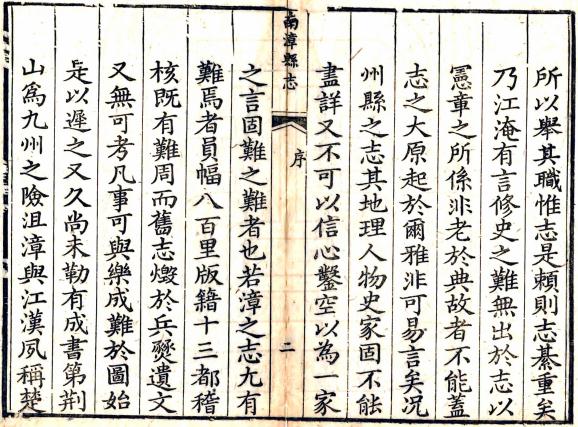 所以舉其職惟志是頼則志綦重矣
乃江淹有言修史之難無出於志以
憲章之所係非老於典故者不能蓋
志之大原起於爾雅非可易言矣况
州縣之志其地理人物史家固不能
盡詳又不可以信心鑿空以為一家
南漳縣志
序
二
之言固難之難者也若漳之志尤有
難焉者員幅八百里版籍十三都稽
核既有難周而舊志燬於兵燹遺文
又無可考凡事可與樂成難於圖始
是以遲之又久尚未勒有成書第荆
山爲九州之險沮漳與江漢夙稱楚